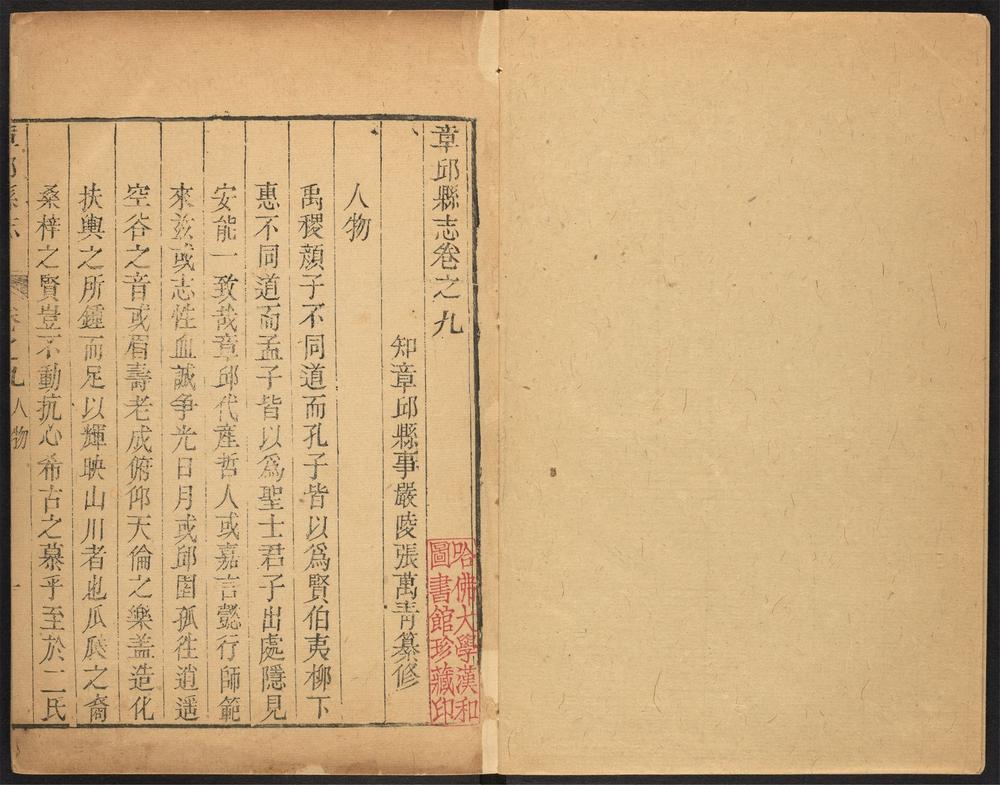 章邱縣志卷之九
知章邱縣事嚴陵張萬青纂修
哈佛大學漢和
圖書館珍藏印
人物
禹稷顔子不同道而孔子皆以爲賢伯夷柳下
惠不同道而孟子皆以爲聖士君子出處隱見
安能一致哉章邱代產哲人或嘉言懿行師範
來兹或志性血誠争光日月或邱園孤徃逍遥
空谷之音或眉壽老成俯仰天倫之樂盖造化
扶輿之所鍾而足以輝映山川者也瓜瓞之裔
桑梓之賢豈不動抗心希古之慕乎至於二氏
章邱縣志 卷之九 人物 一